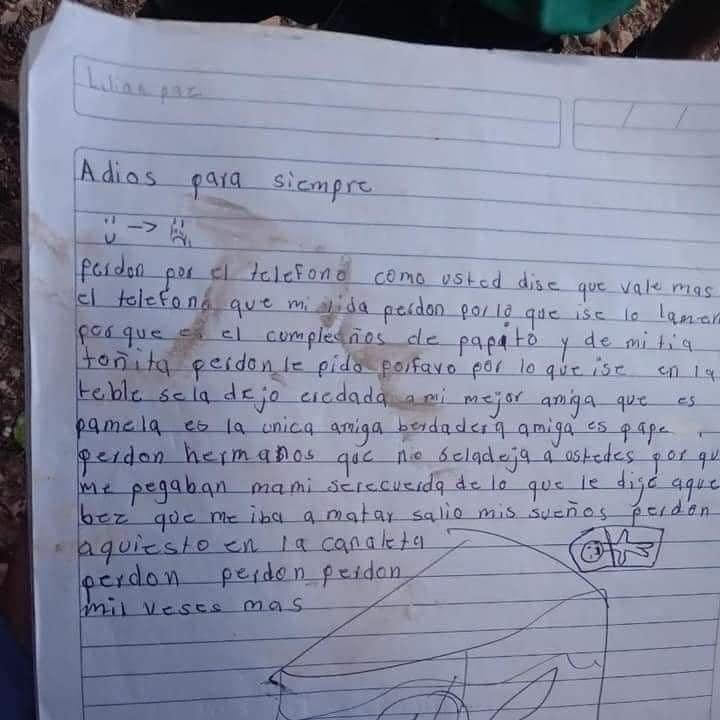 Lilian paz
Adios para siempre
perdon por el telefono como usted dise que vale mas
el telefono que mi vida perdon por lo que ise lo lamen
porque es el cumpleños de papito y de mi tia
toñita perdon le pido porfavo por lo que ise en la
teble se la dejo eredada a mi mejor amiga que es
pamela es la unica amiga berdadera amiga es pape
perdon hermanos que no seladeja a ostedes por qu
me pegaban mami serecuerda de lo que le dije aque
bez que me iba a matar salio mis sueños perdon
aquiesto en la canaleta
perdon perdon perdon
mil veses mas